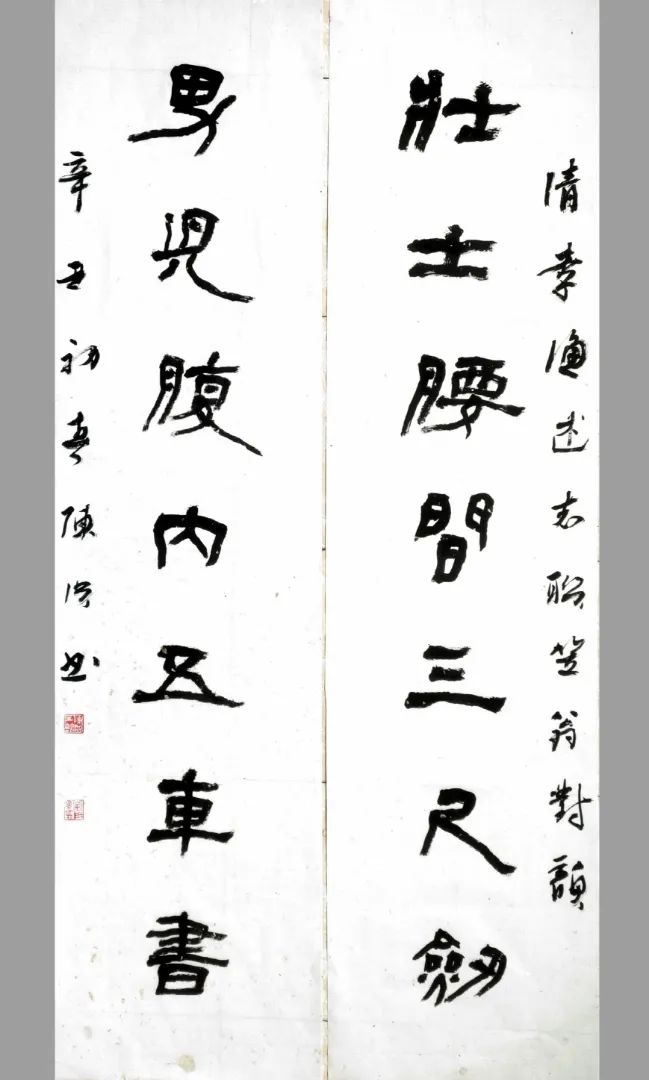 清李漁述志聯笠翁對韻
壯士腰間三尺劒
男兒腹內五車書
辛丑初春陳洪書